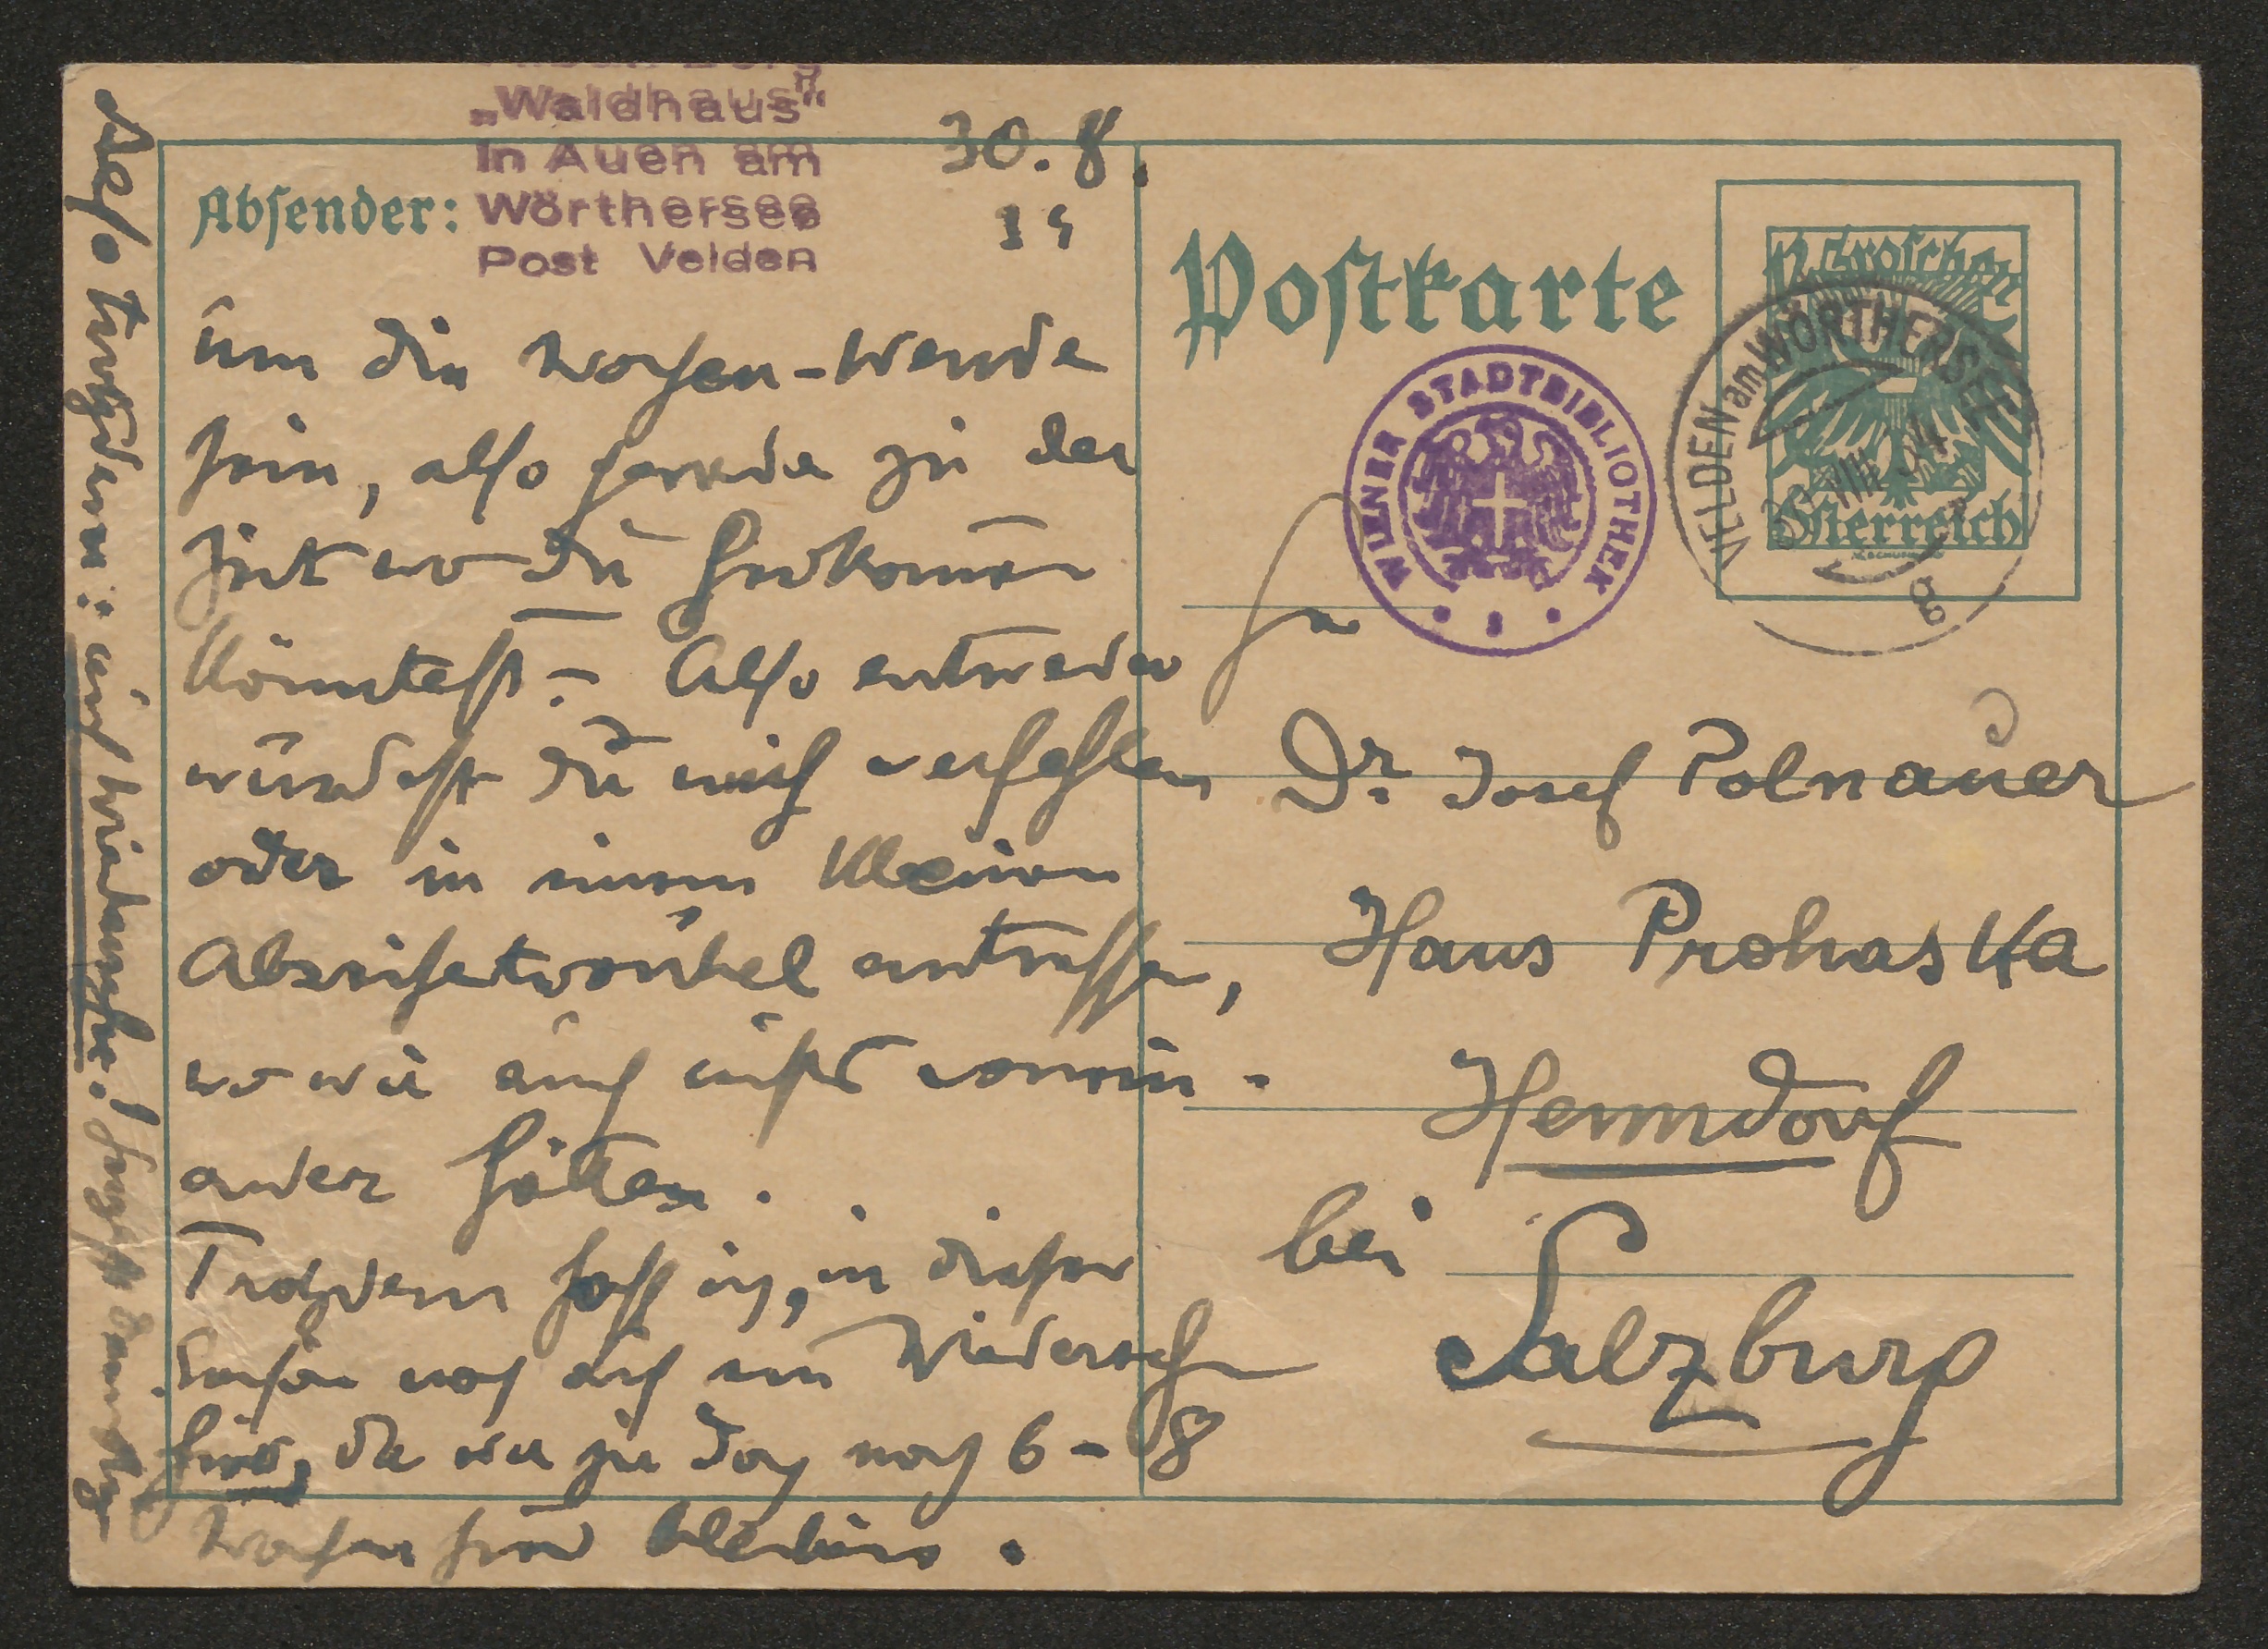 Alban Berg
„Waldhaus"
in Auen am
Wörthersee
Post Velden
Absender:
30. 8.
34
um die Wochen-Wende
sein, also gerade zu der
Zeit wo Du herkommen
könntest. – Also entweder
würdest Du mich verfehlen
oder in einem kleinen
Abreisetrubel antreffen,
wo wir auch nichts vonein-
ander hätten.
Trotzdem hoff ich, in dieser
Saison noch auf ein Wiedersehn
hier, da wir ja doch noch 6–8
Wochen hier bleiben.
Also trotzdem: auf Wiedersehn!
Postkarte
12 Groschen
Österreich
VELDEN am WÖRTHERSEE
30 VIII 34
8
WIENER STADTBIBLIOTHEK
Dr. Josef Polnauer
Haus Prohaska
Henndorf
bei
Salzburg